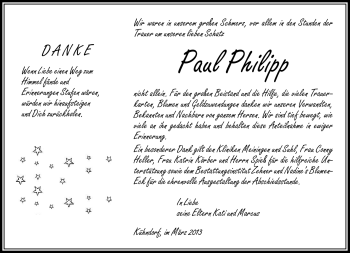 DANKE
Wenn Liebe einen Weg zum
Himmel fände und
Erinnerungen Stufen wären,
würden wir hinaufsteigen
und Dich zurückholen.
Wir waren in unserem großen Schmerz, vor allem in den Stunden der
Trauer um unseren lieben Schatz
Paul Philipp
nicht allein. Für den großen Beistand und die Hilfe, die vielen Trauer-
karten, Blumen und Geldzuwendungen danken wir unseren Verwandten,
Bekannten und Nachbarn von ganzem Herzen. Wir sind tief bewegt, wie
viele an ihn gedacht haben und behalten diese Anteilnahme in ewiger
Erinnerung.
Ein besonderer Dank gilt den Kliniken Meiningen und Suhl, Frau Conny
Heller, Frau Katrin Körber und Herrn Spieß für die hilfreiche Unter-
stützung sowie dem Bestattungsinstitut Zehner und Nadine's Blumen-
Eck für die ehrenvolle Ausgestaltung der Abschiedsstunde.
In Liebe
seine Eltern Kati und Marcus
Kühndorf, im März 2013